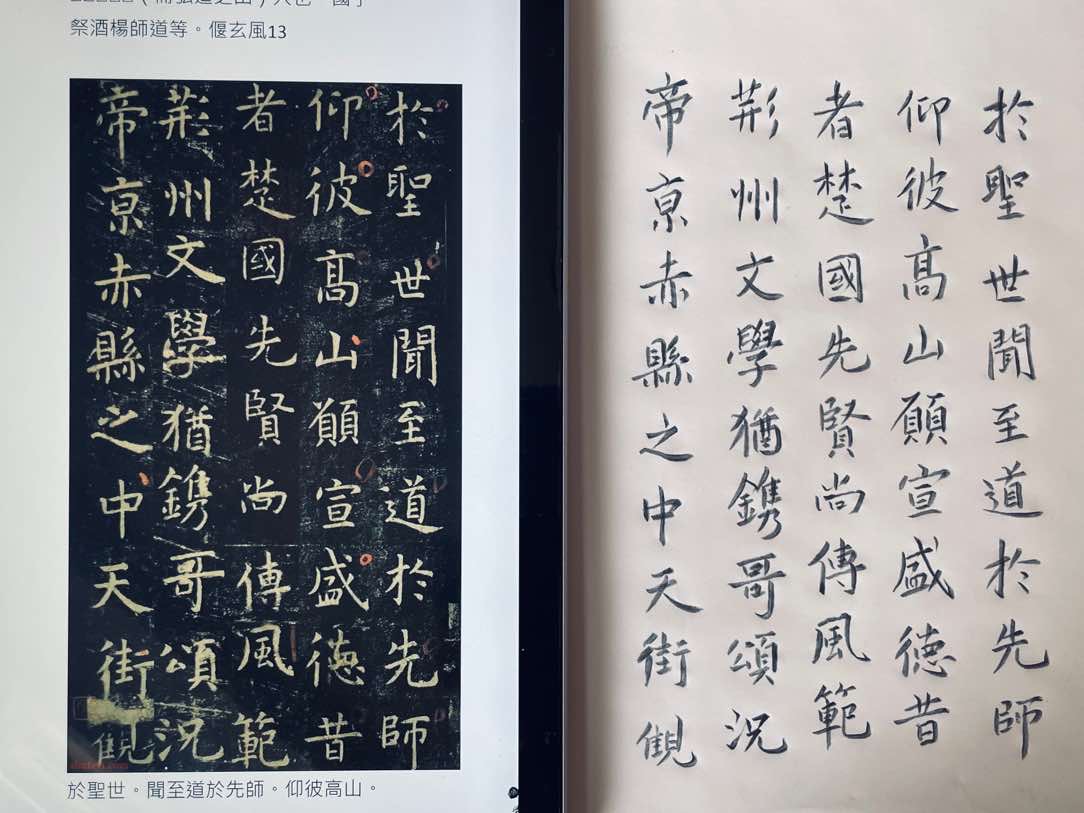 祭酒楊師道等。偃玄風13
於聖世聞至道於先師
仰彼高山願宣盛德昔
者楚國先賢尚傳風範
荊州文學猶鐫哥頌況
帝京赤縣之中天街觀
於聖世。聞至道於先師。仰彼高山。
於聖世聞至道於先師
仰彼高山願宣盛德昔
者楚國先賢尚傳風範
荊州文學猶鐫哥頌況
帝京赤縣之中天街觀